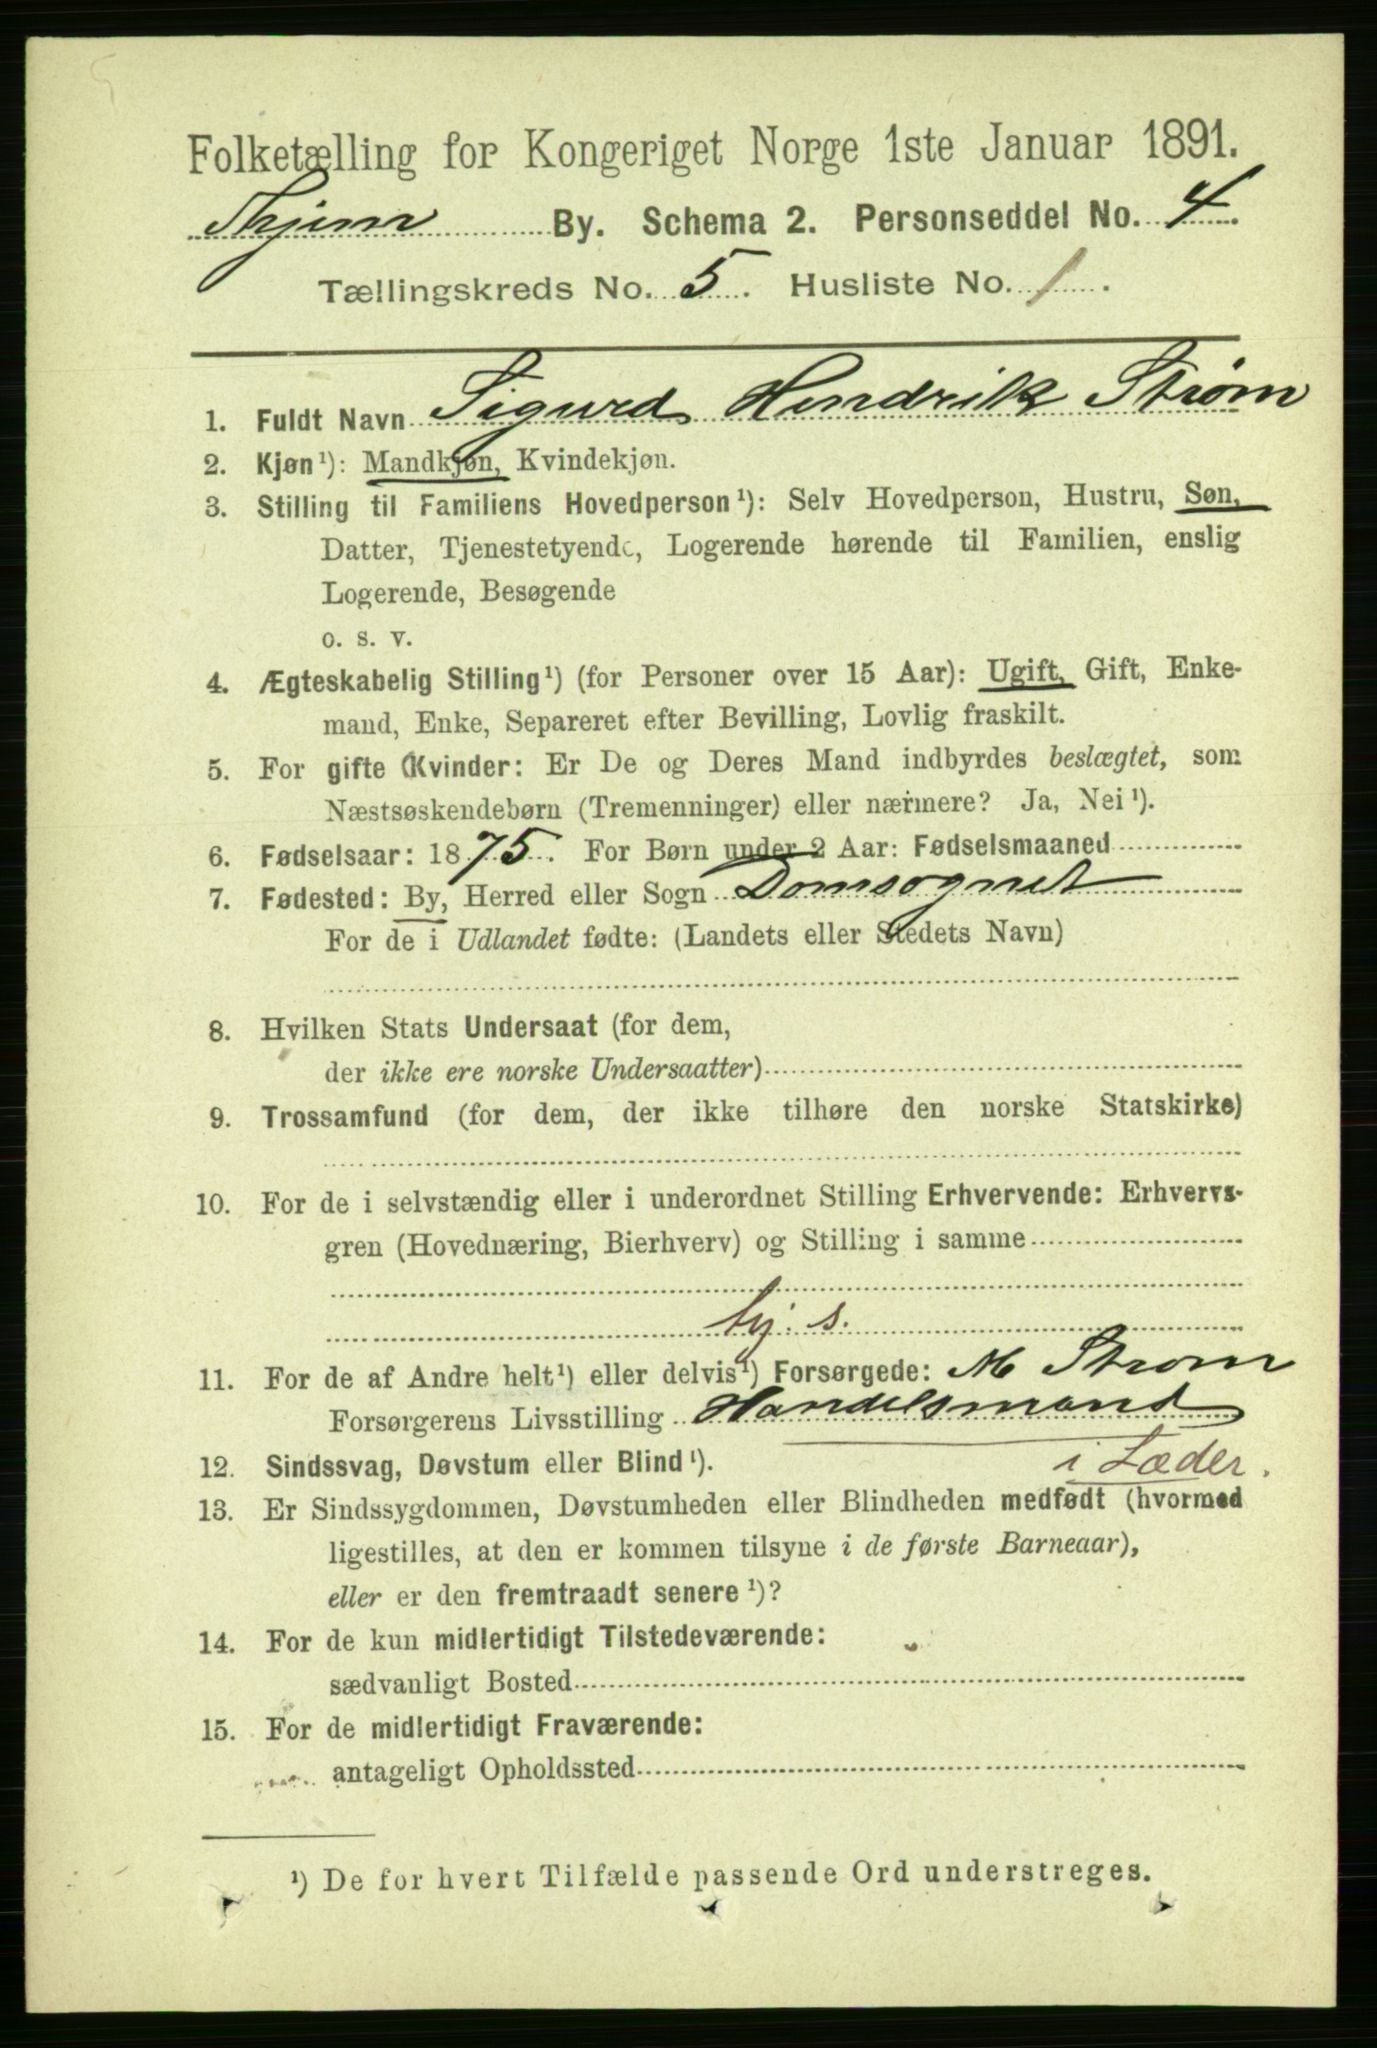 Folketælling for Kongeriget Norge 1ste Januar 1891.
Thjem By. Schema 2. Personseddel No. 4.
Tællingskreds No. 5. Husliste No. 1.
1. Fuldt Navn Sigurd Hendrik Strøm
2. Kjøn¹): Mandkjøn, Kvindekjøn.
3. Stilling til Familiens Hovedperson¹): Selv Hovedperson, Hustru, Søn,
Datter, Tjenestetyende, Logerende hørende til Familien, enslig
Logerende, Besøgende
o. s. v.
4. Ægteskabelig Stilling¹) (for Personer over 15 Aar): Ugift, Gift, Enke-
mand, Enke, Separeret efter Bevilling, Lovlig fraskilt.
5. For gifte Kvinder: Er De og Deres Mand indbyrdes beslægtet, som
Næstsøskendebørn (Tremenninger) eller nærmere? Ja, Nei¹).
6. Fødselsaar: 1875. For Børn under 2 Aar: Fødselsmaaned
7. Fødested: By, Herred eller Sogn Domsognet
For de i Udlandet fødte: (Landets eller Stedets Navn)
8. Hvilken Stats Undersaat (for dem,
der ikke ere norske Undersaatter)
9. Trossamfund (for dem, der ikke tilhøre den norske Statskirke)
10. For de i selvstændig eller i underordnet Stilling Erhvervende: Erhvervs-
gren (Hovednæring, Bierhverv) og Stilling i samme
hj. s.
11. For de af Andre helt¹) eller delvis¹) Forsørgede: M Strøm
Forsørgerens Livsstilling Handelsmand
i Læder.
12. Sindssvag, Døvstum eller Blind¹).
13. Er Sindssygdommen, Døvstumheden eller Blindheden medfødt (hvormed
ligestilles, at den er kommen tilsyne i de første Barneaar),
eller er den fremtraadt senere¹)?
14. For de kun midlertidigt Tilstedeværende:
sædvanligt Bosted
15. For de midlertidigt Fraværende:
antageligt Opholdssted
¹) De for hvert Tilfælde passende Ord understreges.